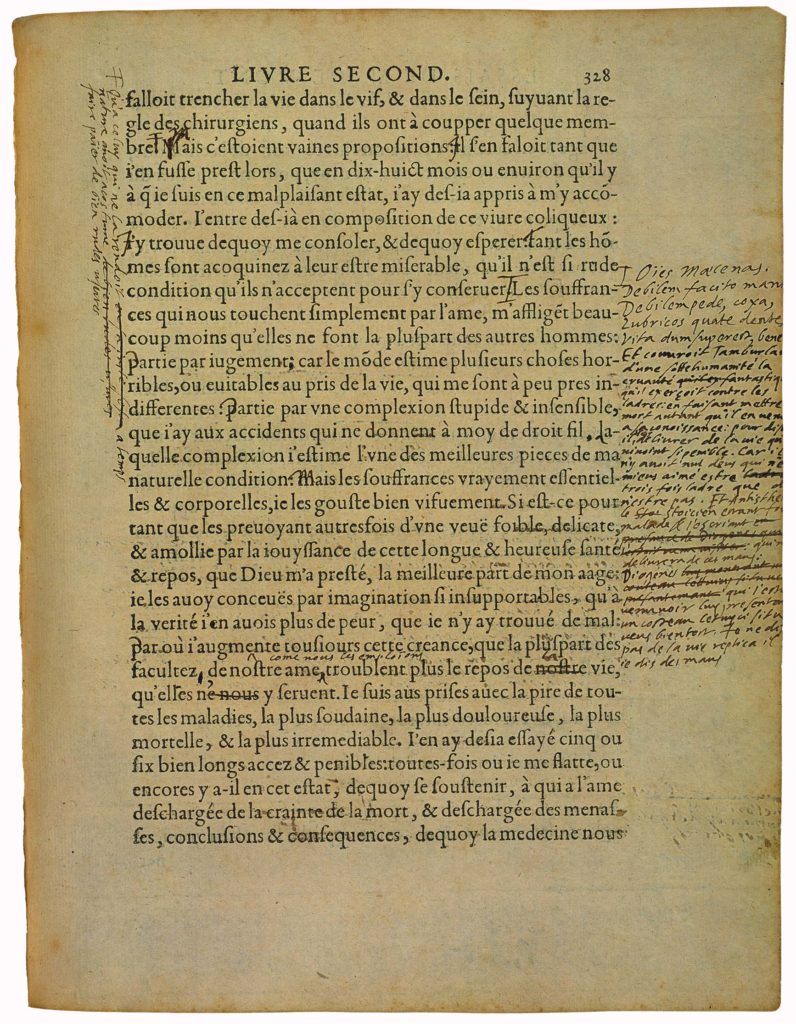 LIVRE SECOND. 328
falloit trencher la vie dans le vif, & dans le sein, suyuant la re-
gle des chirurgiens, quand ils ont à coupper quelque mem-
bre Mais c'estoient vaines propositions Il s'en faloit tant que
i'en fusse prest lors, que en dix-huict mois ou enuiron qu'il y
à q̃ ie suis en ce malplaisant estat, i'ay des-ia appris à m'y accõ-
moder. I'entre des-ià en composition de ce viure coliqueux :
I'y trouue dequoy me consoler, & dequoy esperer: tant les hõ-
mes sont acoquinez à leur estre miserable, qu'il n'est si rude
condition qu'ils n'acceptent pour s'y conseruer Les souffran-
ces qui nous touchent simplement par l'ame, m'affligẽt beau-
coup moins qu'elles ne font la pluspart des autres hommes:
Partie par iugement; car le mõde estime plusieurs choses hor-
ribles, ou euitables au pris de la vie, qui me sont à peu pres in-
differentes: Partie par vne complexion stupide & insensible,
que i'ay aux accidents qui ne donnent à moy de droit fil, la-
quelle complexion i'estime l'vne des meilleures pieces de ma
naturelle condition: Mais les souffrances vrayement essentiel-
les & corporelles, ie les gouste bien vifuement. Si est-ce pour
tant que les preuoyant autresfois d'vne veuë foible, delicate,
& amollie par la iouyssance de cette longue & heureuse santé
& repos, que Dieu m'a presté, la meilleure part de mon aage:
ie les auoy conceuës par imagination si insupportables, qu'à
la verité i'en auois plus de peur, que ie n'y ay trouué de mal:
Par où i'augmente tousiours cette creance, que la pluspart des
come nous les emploions
facultez, de nostre ame, troublent plus le repos de nostre vie,
la
qu'elles ne nous y seruent. Ie suis aus prises auec la pire de tou-
tes les maladies, la plus soudaine, la plus douloureuse, la plus
mortelle, & la plus irremediable. I'en ay desia essayé cinq ou
six bien longs accez & penibles: toutes-fois ou ie me flatte, ou
encores y a-il en cet estat, dequoy se soustenir, à qui a l'ame
deschargée de la crainte de la mort, & deschargée des menas-
ses, conclusions & consequences, dequoy la medecine nous
Mæcenas.
Debilem facito manu
Debilem pede, coxa,
Lubricos quate dentes
Vita dum superest, bene
Et couuroit Tamburla
d'une sotte humanité la
cruauté fantastiq
qu'il exerçoit contre les
ladres: en faisant mettre
mort autant qu'il en ven
a sa conoissance: pour
deliurer de la vie qu'
penible. Car i
n'y auoit nul deus qui ne
mieus aimé estre
trois fois ladre que
n'estre pas. Et Antisthe
le Stoicien estant fo
malade & s'escriant
deliurera de ces maus:
Diogenes
qui l'est
venu voir luy presentant
un couteau cetuici si tu
veus bientost: Ie ne di
pas de la vie replica il
ie dis des maus